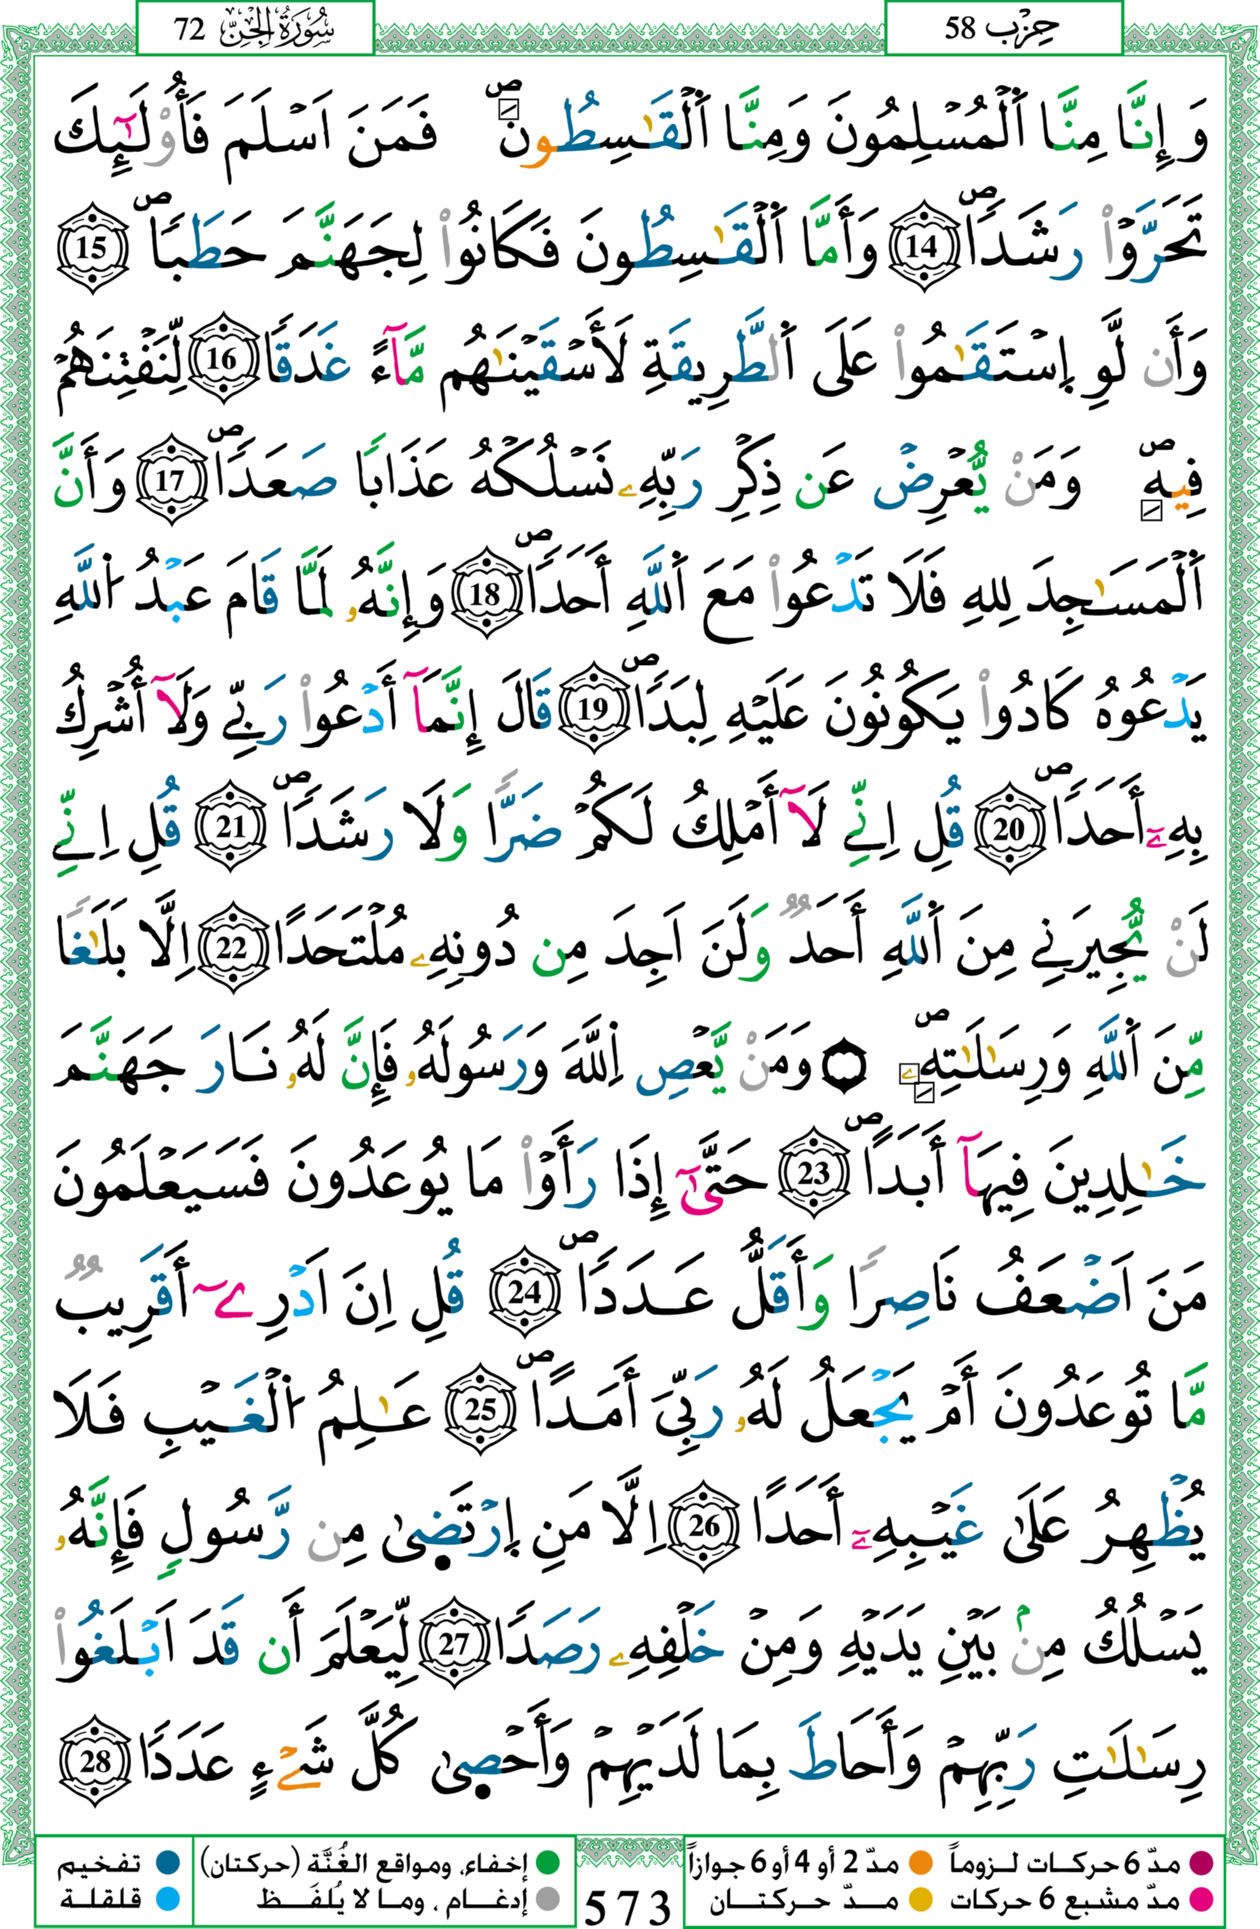 سُورَةُ الْجِنّ 72
حِزْب 58
وَإِنَّا مِنَّا اَ۬لْمُسْلِمُونَ وَمِنَّا اَ۬لْقَٰسِطُونَۖ فَمَنَ اَسْلَمَ فَأُوْلَٰٓئِكَ
تَحَرَّوْاْ رَشَداٗۖ 14 وَأَمَّا اَ۬لْقَٰسِطُونَ فَكَانُواْ لِجَهَنَّمَ حَطَباٗۖ 15
وَأَن لَّوِ اِ۪سْتَقَٰمُواْ عَلَى اَ۬لطَّرِيقَةِ لَأَسْقَيْنَٰهُم مَّآءً غَدَقاٗ 16 لِّنَفْتِنَهُمْ
فِيهِۖ وَمَنْ يُّعْرِضْ عَن ذِكْرِ رَبِّهِۦ نَسْلُكْهُ عَذَاباٗ صَعَداٗۖ 17 وَأَنَّ
اَ۬لْمَسَٰجِدَ لِلهِ فَلَا تَدْعُواْ مَعَ اَ۬للَّهِ أَحَداٗۖ 18 وَإِنَّهُۥ لَمَّا قَامَ عَبْدُ اُ۬للَّهِ
يَدْعُوهُ كَادُواْ يَكُونُونَ عَلَيْهِ لِبَداٗۖ 19 قَالَ إِنَّمَآ أَدْعُواْ رَبِّے وَلَآ أُشْرِكُ
بِهِۦٓ أَحَداٗۖ 20 قُلِ اِنِّے لَآ أَمْلِكُ لَكُمْ ضَرّاٗ وَلَا رَشَداٗۖ 21 قُلِ اِنِّے
لَنْ يُّجِيرَنِے مِنَ اَ۬للَّهِ أَحَدٞ وَلَنَ اَجِدَ مِن دُونِهِۦ مُلْتَحَداً 22 اِلَّا بَلَٰغاٗ
مِّنَ اَ۬للَّهِ وَرِسَٰلَٰتِهِۦۖ وَمَنْ يَّعْصِ اِ۬للَّهَ وَرَسُولَهُۥ فَإِنَّ لَهُۥ نَارَ جَهَنَّمَ
خَٰلِدِينَ فِيهَآ أَبَداًۖ 23 حَتَّىٰٓ إِذَا رَأَوْاْ مَا يُوعَدُونَ فَسَيَعْلَمُونَ
مَنَ اَضْعَفُ نَاصِراٗ وَأَقَلُّ عَدَداٗۖ 24 قُلِ اِنَ اَدْرِےٓ أَقَرِيبٞ
مَّا تُوعَدُونَ أَمْ يَجْعَلُ لَهُۥ رَبِّيَ أَمَداًۖ 25 عَٰلِمُ اُ۬لْغَيْبِ فَلَا
يُظْهِرُ عَلَىٰ غَيْبِهِۦٓ أَحَداً 26 اِلَّا مَنِ اِ۪رْتَضٜىٰ مِن رَّسُولٖ فَإِنَّهُۥ
يَسْلُكُ مِنۢ بَيْنِ يَدَيْهِ وَمِنْ خَلْفِهِۦ رَصَداٗ 27 لِّيَعْلَمَ أَن قَدَ اَبْلَغُواْ
رِسَٰلَٰتِ رَبِّهِمْ وَأَحَاطَ بِمَا لَدَيْهِمْ وَأَحْصٜىٰ كُلَّ شَےْءٍ عَدَداٗ 28
مدّ 6 حركات لـزوماً مدّ 2 أو 4 أو 6 جوازاً
مدّ مشبع 6 حركات مــدّ حــركتــان
573
إخفاء، ومواقع الغُنَّة (حركتان) تفخيم
إدغــام ، ومـا لا يُلفَــظ قلقلة